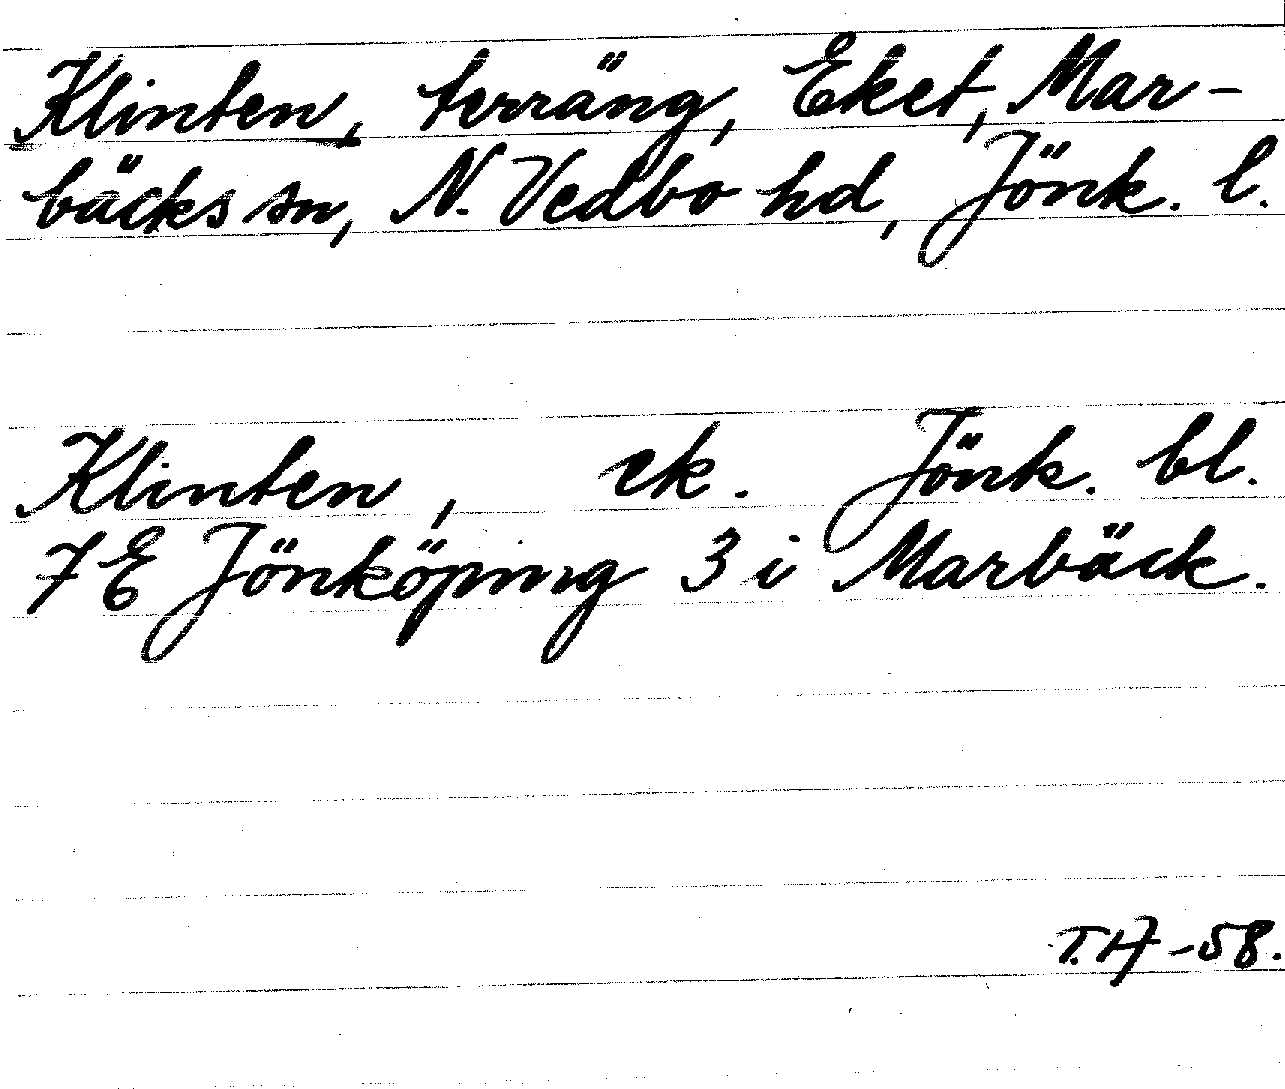 Klinten, terräng, Eket, Mar-
bäcks sn, N. Vedbo hd, Jönk. l.
Klinten, ek. Jönk. bl.
7E Jönköping 3 i Marbäck.
T.H -58.